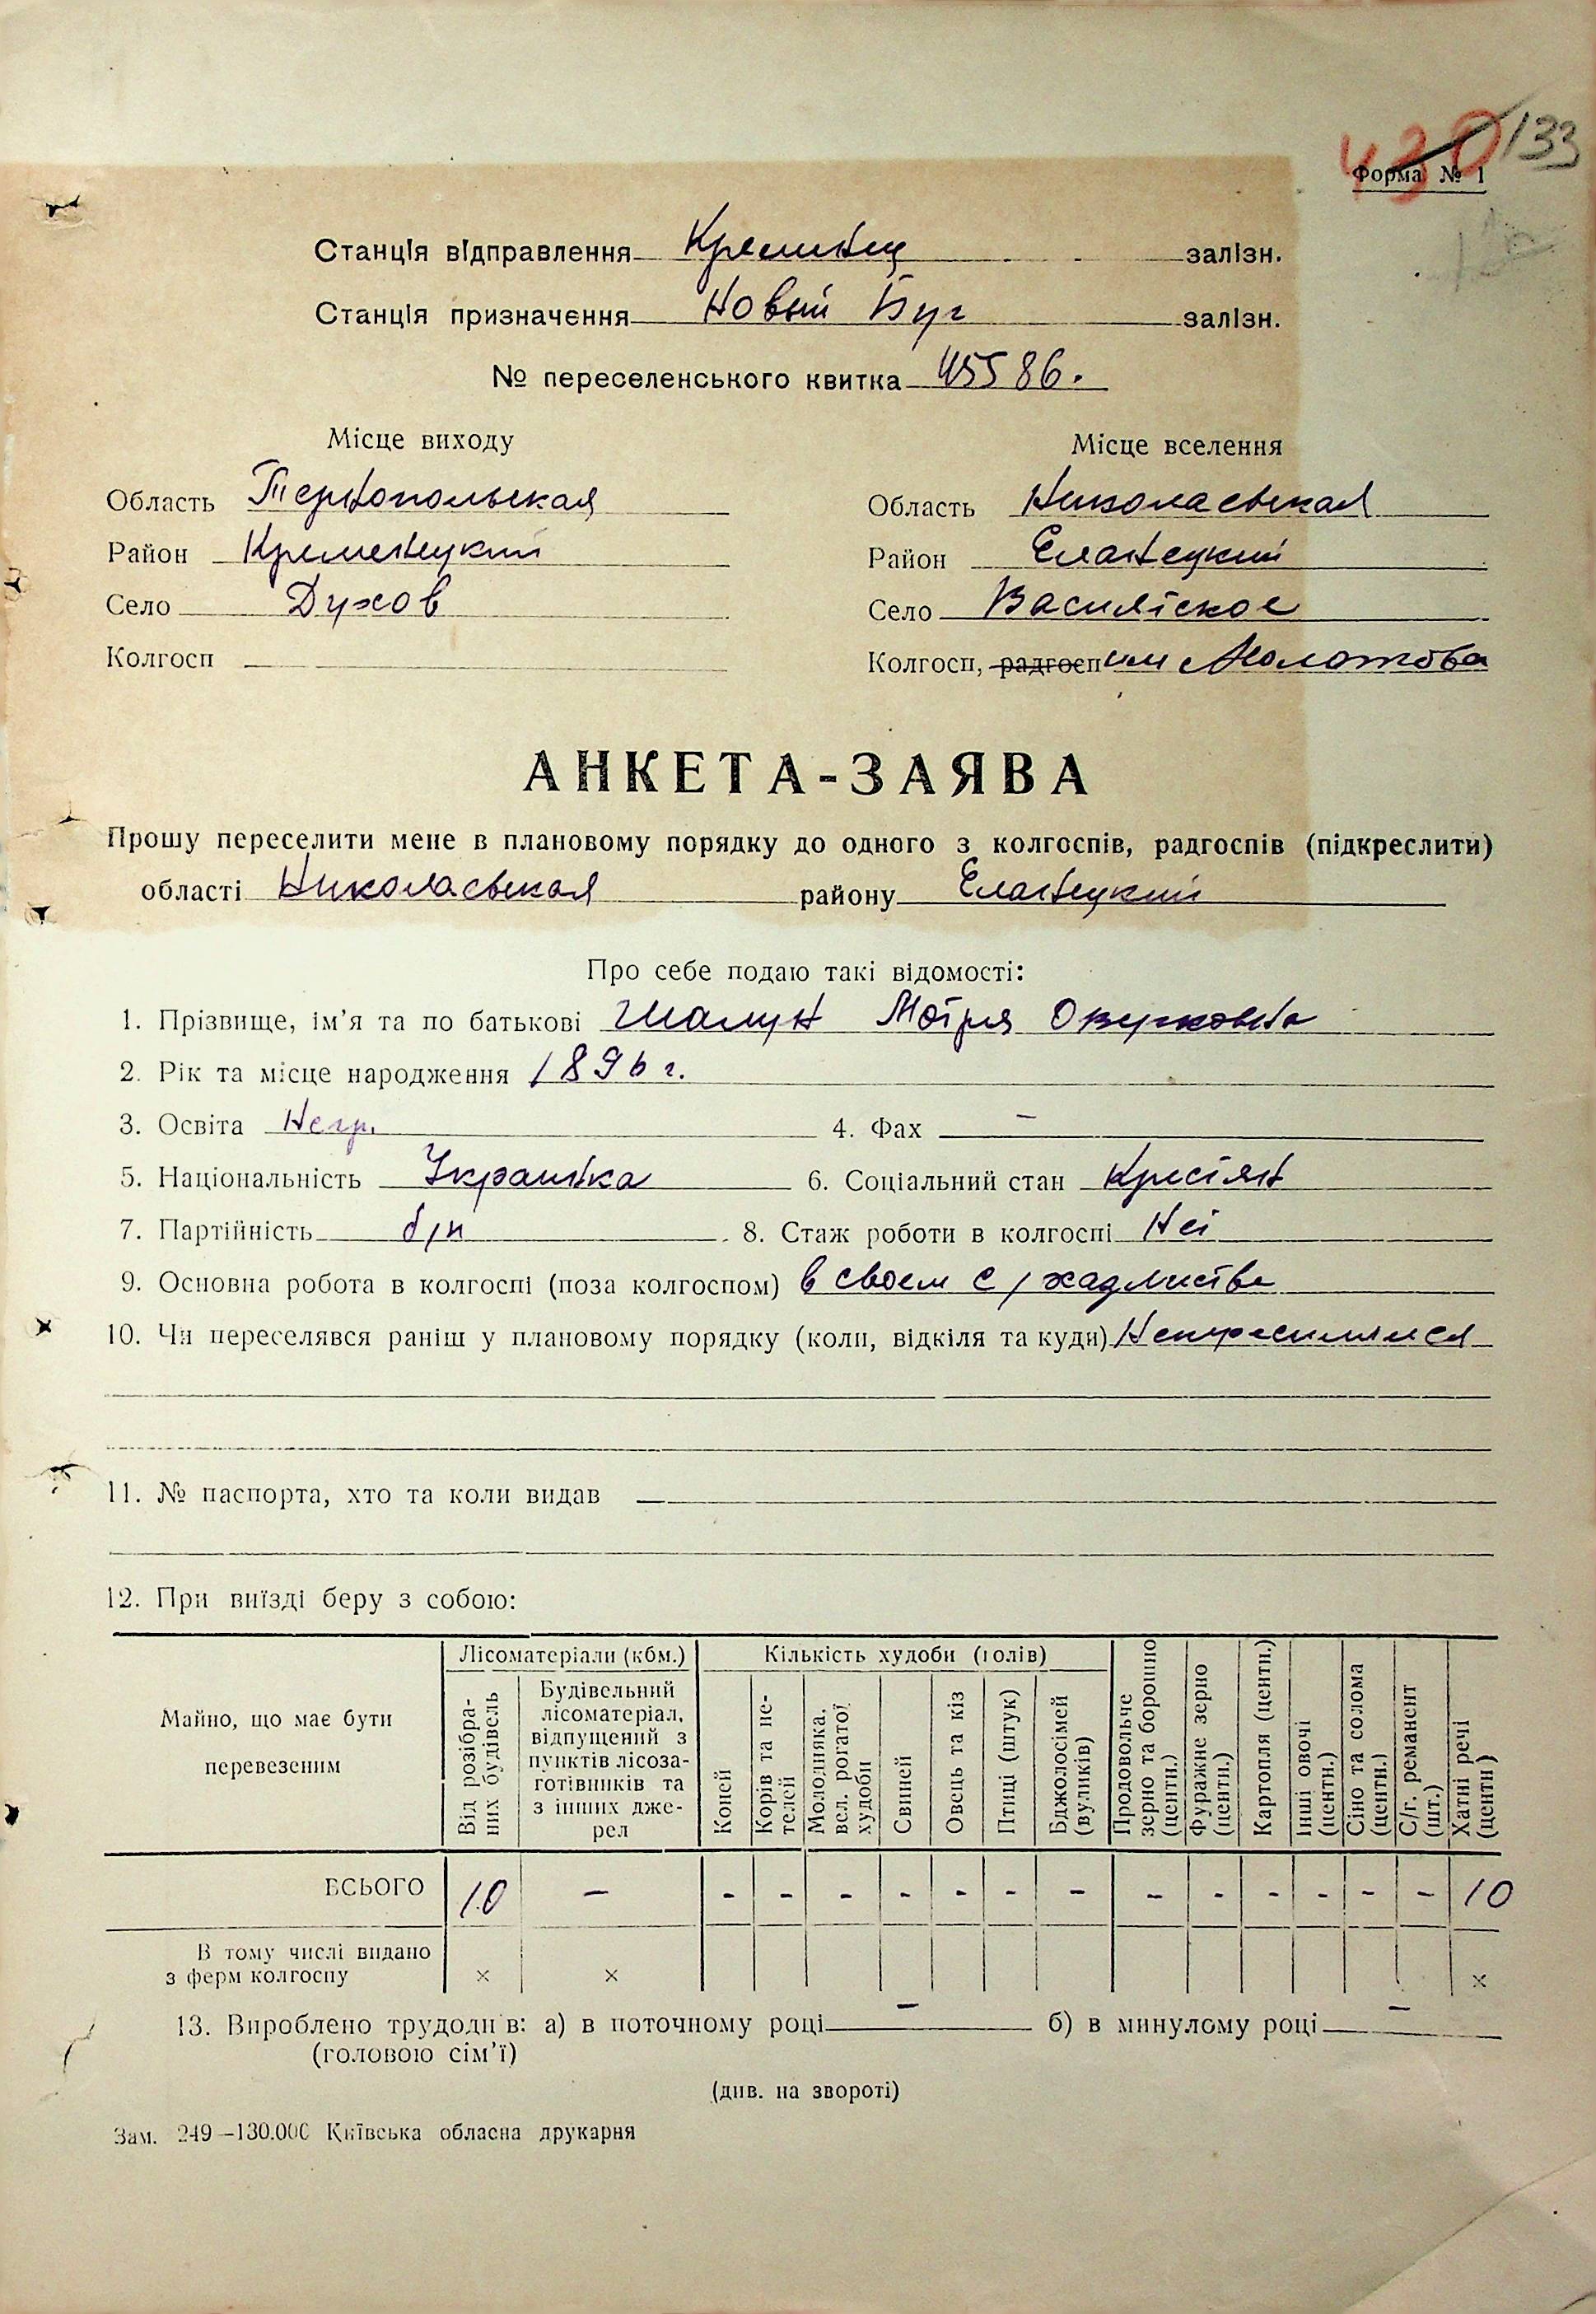 430 133
Форма № 1
Станція відправлення Кременец залізн.
Станція призначення Новый Буг залізн.
№ переселенського квитка 45586.
Місце виходу
Місце вселення
Область Тернопольская
Область Николаевская
Район Кременецкий
Район Еланецкий
Село Духов
Село
Колгосп —
Колгосп, радгосп им Молотова
АНКЕТА-ЗАЯВА
Прошу переселити мене в плановому порядку до одного з колгоспів, радгоспів (підкреслити)
області Николаевская району Еланецкий
Про себе подаю такі відомості:
1. Прізвище, ім’я та по батькові Шалун Мотря
2. Рік та місце народження 1896 г.
3. Освіта Негр. 4. Фах —
5. Національність Украинка 6. Соціальний стан
7. Партійність б/п 8. Стаж роботи в колгоспі
9. Основна робота в колгоспі (поза колгоспом) в своем с/хазяистве
10. Чи переселявся раніш у плановому порядку (коли, відкіля та куди)
11. № паспорта, хто та коли видав —
12. При виїзді беру з собою:
Майно, що має бути перевезеним
Лісоматеріали (кбм.)
Від розібраних будівель
Будівельний лісоматеріал, відпущений з пунктів лісозаготівників та з інших джерел
Кількість худоби (голів)
Коней
Корів та нетелей
Молодняка, вел. рогатої худоби
Свиней
Овець та кіз
Птиці (штук)
Бджолосімей (вуликів)
Продовольче зерно та борошно (центн.)
Фуражне зерно (центн.)
Картопля (центн.)
Інші овочі (центн.)
Сіно та солома (центн.)
С/г. реманент (шт.)
Хатні речі (центн)
ВСЬОГО 10 — - - - - - - - - - - - - - 10
В тому числі видано
з ферм колгоспу × × ×
13. Вироблено трудоднів: а) в поточному році — б) в минулому році —
(головою сім’ї)
(див. на звороті)
Зам. 249—130.000 Київська обласна друкарня